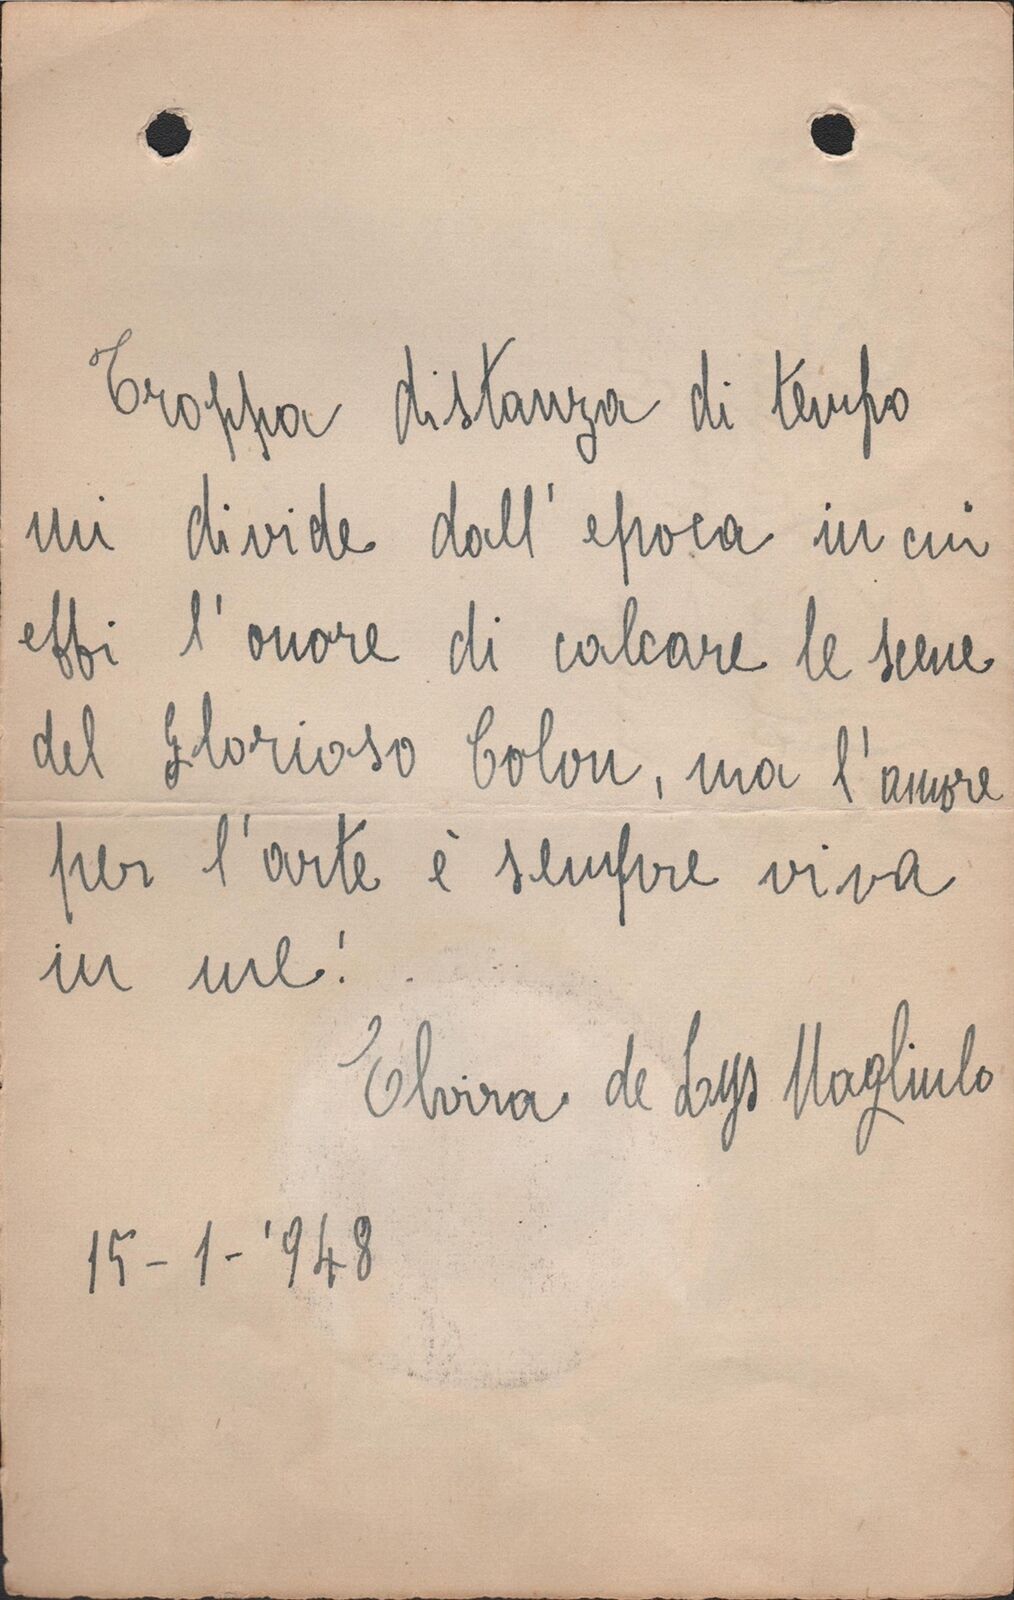 Troppa distanza di tempo
mi divide dall'epoca in cui
ebbi l'onore di calcare le scene
del Glorioso Colon, ma l'amore
per l'arte è sempre viva
in me!
Elvira de Lys Magliulo
15-1-'948